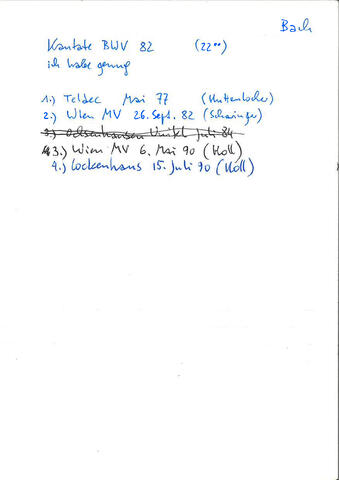 Bach
Kantate BWV 82 (22⁰⁰)
ich habe genug
1.) Teldec Mai 77 (Huttenlocher)
2.) Wien MV 26. Sept. 82 (Scharinger)
3.) Ochsenhausen Juli 84
3.) Wien MV 6. Mai 90 (Holl)
4.) Lockenhaus 15. Juli 90 (Holl)